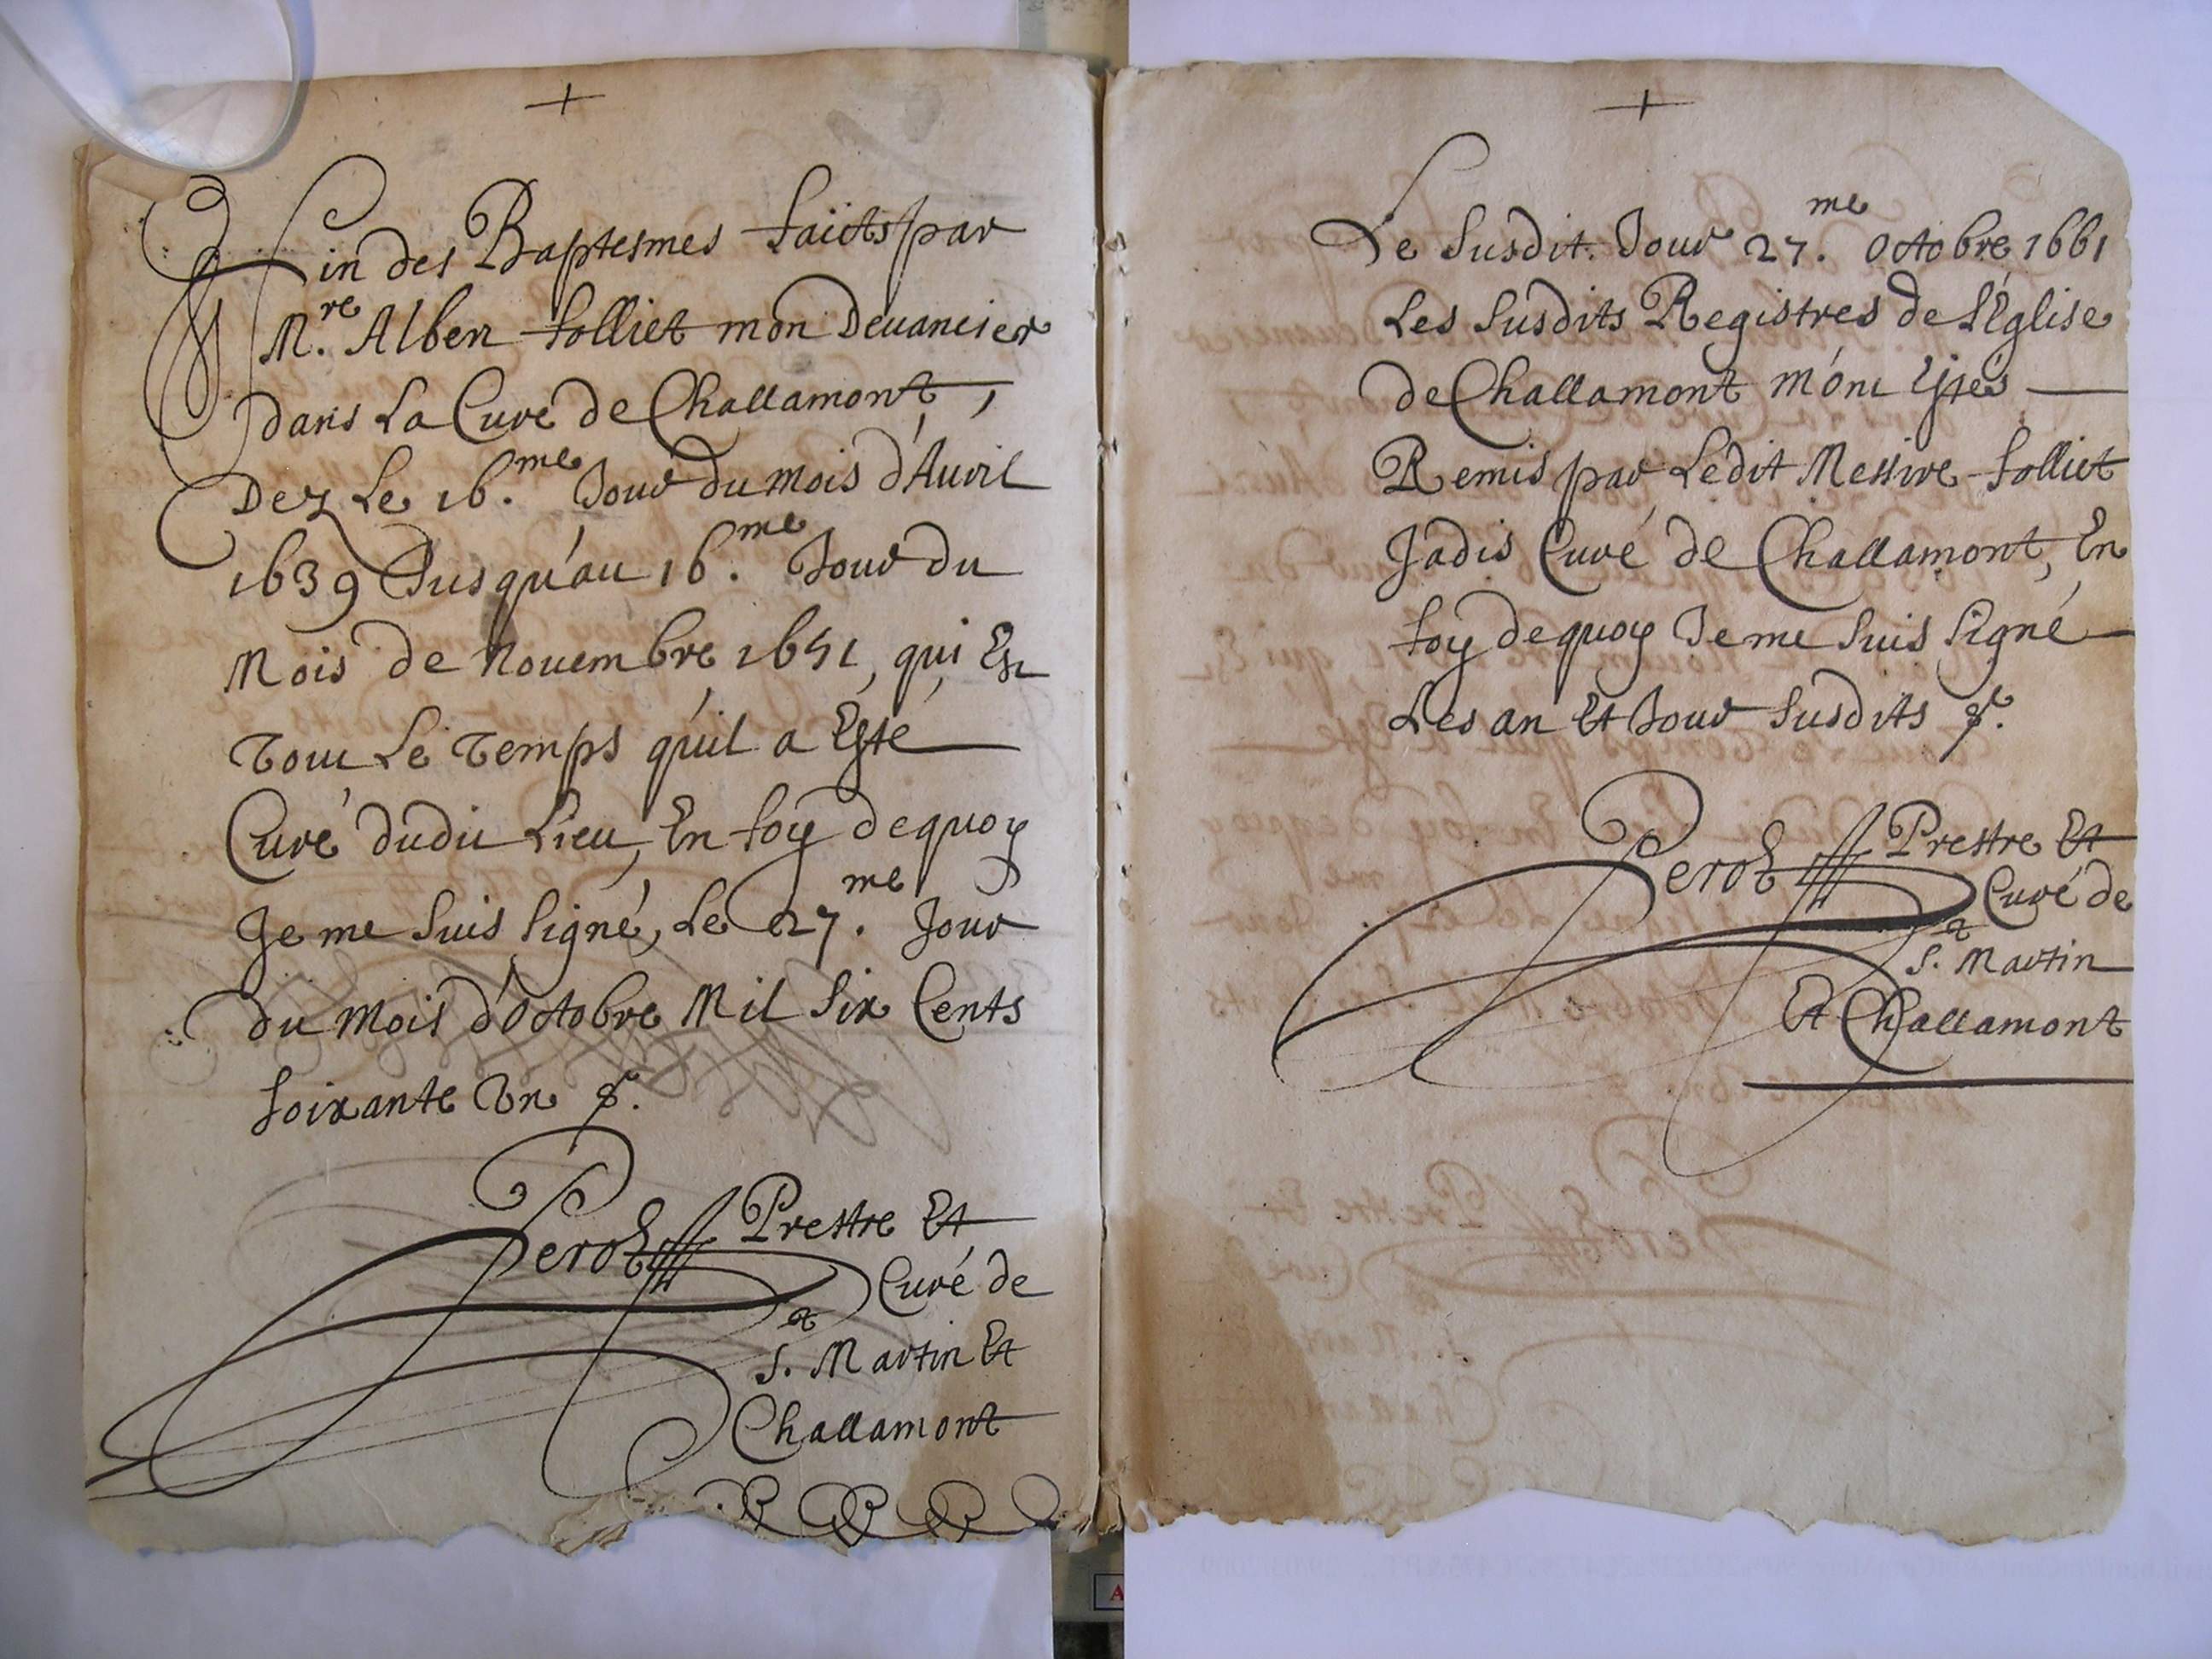 +
Fin des Baptesmes faicts par
M.re Albert folliet mon Devancier
dans La Cure de Challamont,
Dez Le 16.me Jour du mois d'Auril
1639 Jusqu'au 16.me Jour du
Mois de Nouembre 1651, qui Est
Tout Le Temps qu'il a Esté
Curé dudit Lieu, En foy dequoy
Je me suis signé, Le 27.me Jour
du Mois d'Octobre Mil Six Cents
soixante Un
Perot Prestre Et
Curé de
S.t Martin Et
Challamont
+
Le susdit Jour 27.me Octobre 1661
Les susdits Registres de L'Eglise
de Challamont m'ont Estés
Remis par Ledit Messire folliet
Jadis Curé de Challamont, En
foy dequoy Je me suis signé
Les an Et Jour susdits
Perot Prestre Et
Curé de
S.t Martin
Et Challamont